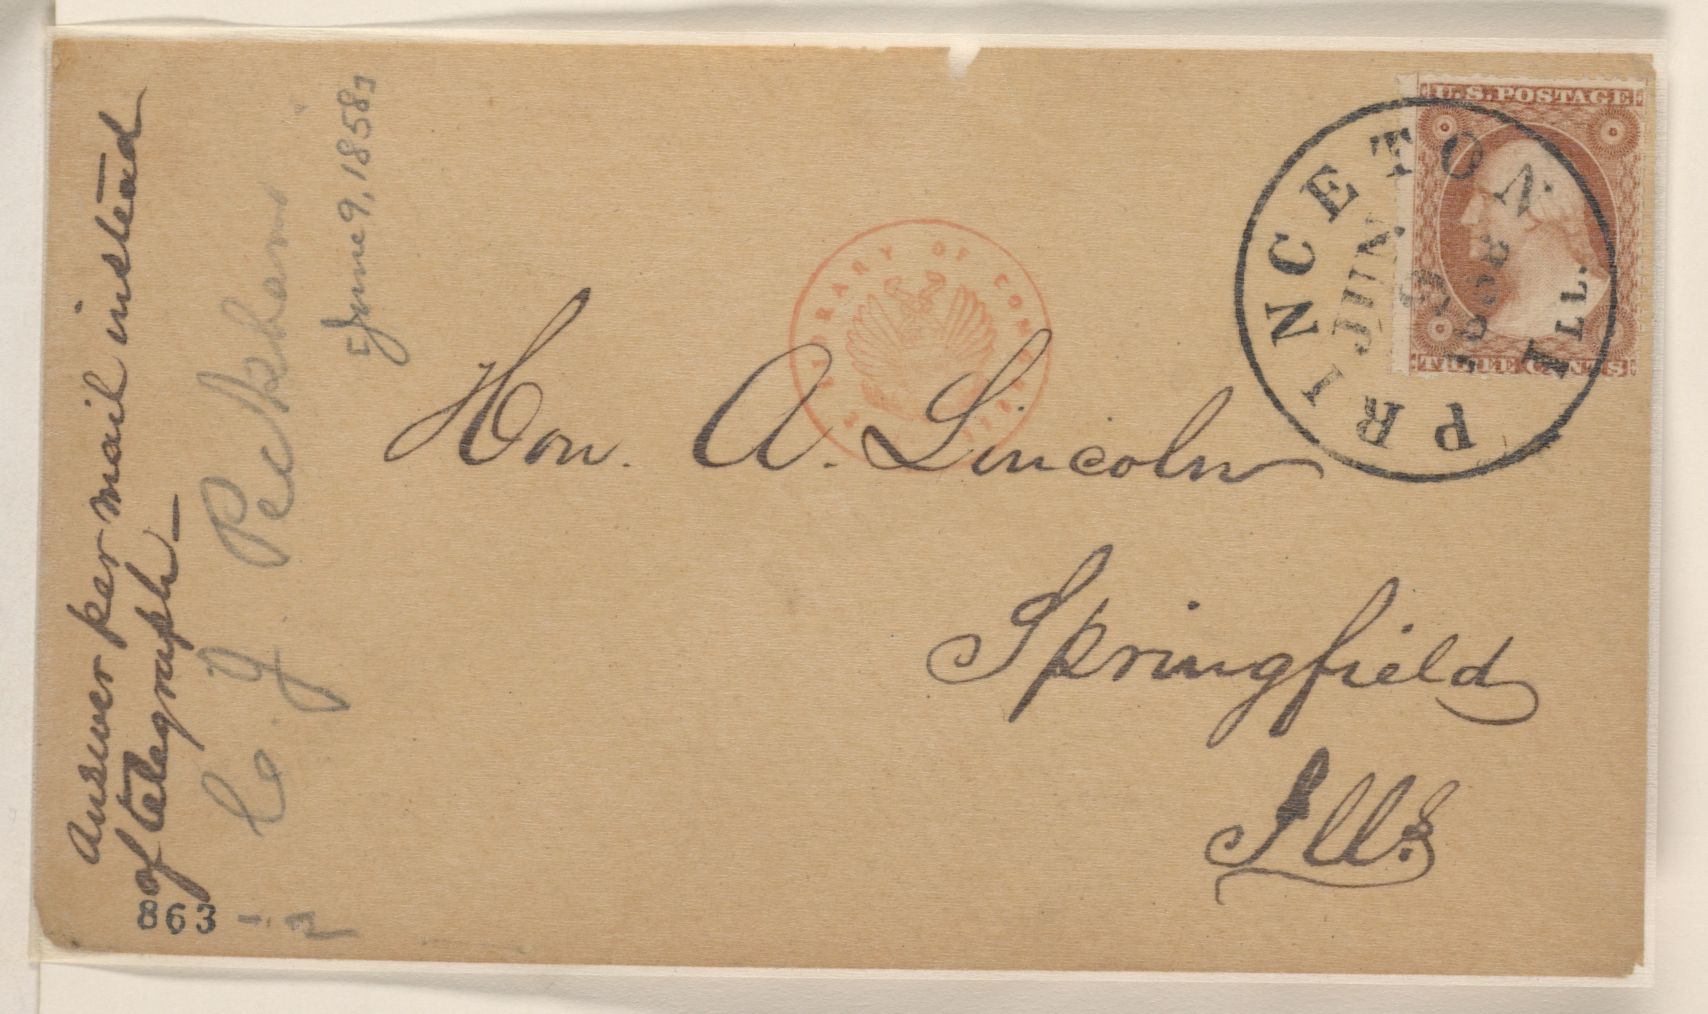 Answer per mail instead
of telegraph—
C. J. Peckham
[June 9, 1858]
Hon. A. Lincoln
Springfield
Ills.
U.S. POSTAGE
THREE CENTS
PRINCETON
JUN.
9
1858
ILL.
LIBRARY OF CONGRESS
863